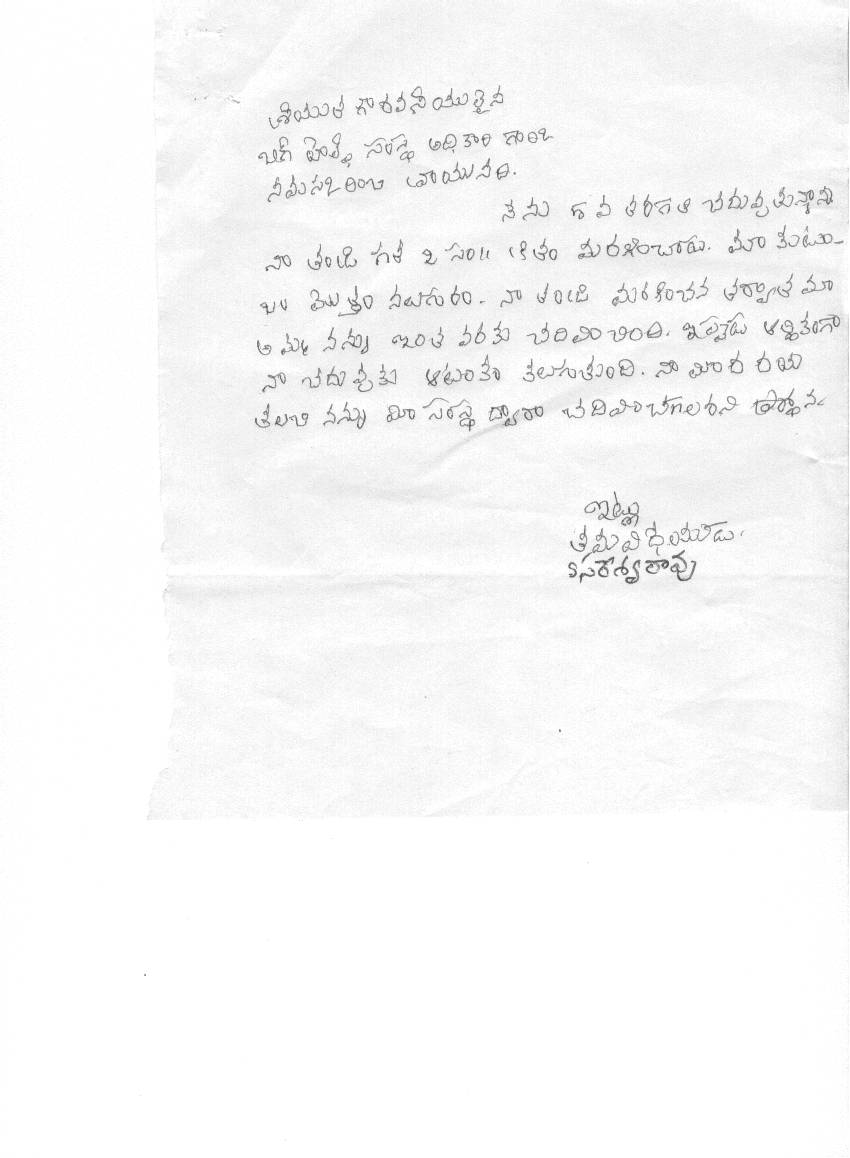 శ్రీయుత గౌరవనీయులైన
బిగ్ హెల్ప్ సంస్థ అధికారి గారికి
నమస్కరించి వ్రాయునది.
నేను 8వ తరగతి చదువుతున్నాను
నా తండ్రి గత 2 సం॥ క్రితం మరణించారు. మా కుటుం-
బం మొత్తం నలుగురం. నా తండ్రి మరణించిన తర్వాత మా
అమ్మ నన్ను ఇంత వరకు చదివించింది. ఇప్పుడు ఆర్థికంగా
నా చదువుకు ఆటంకం కలుగుతుంది. నా మీద దయ
తలచి నన్ను మీ సంస్థ ద్వారా చదివించగలరని ప్రార్థన.
ఇట్లు
తమ విధేయుడు.